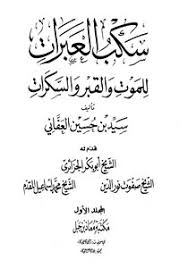 سكب العبرات
للموت والقبر والسكرات
تأليف
سيد بن حسين العفاني
قدم له
الشيخ أبو بكر الجزائري
الشيخ صفوت نور الدين الشيخ محمد إسماعيل المقدم
المجلد الأول
مكتبة معاذ بن جبل